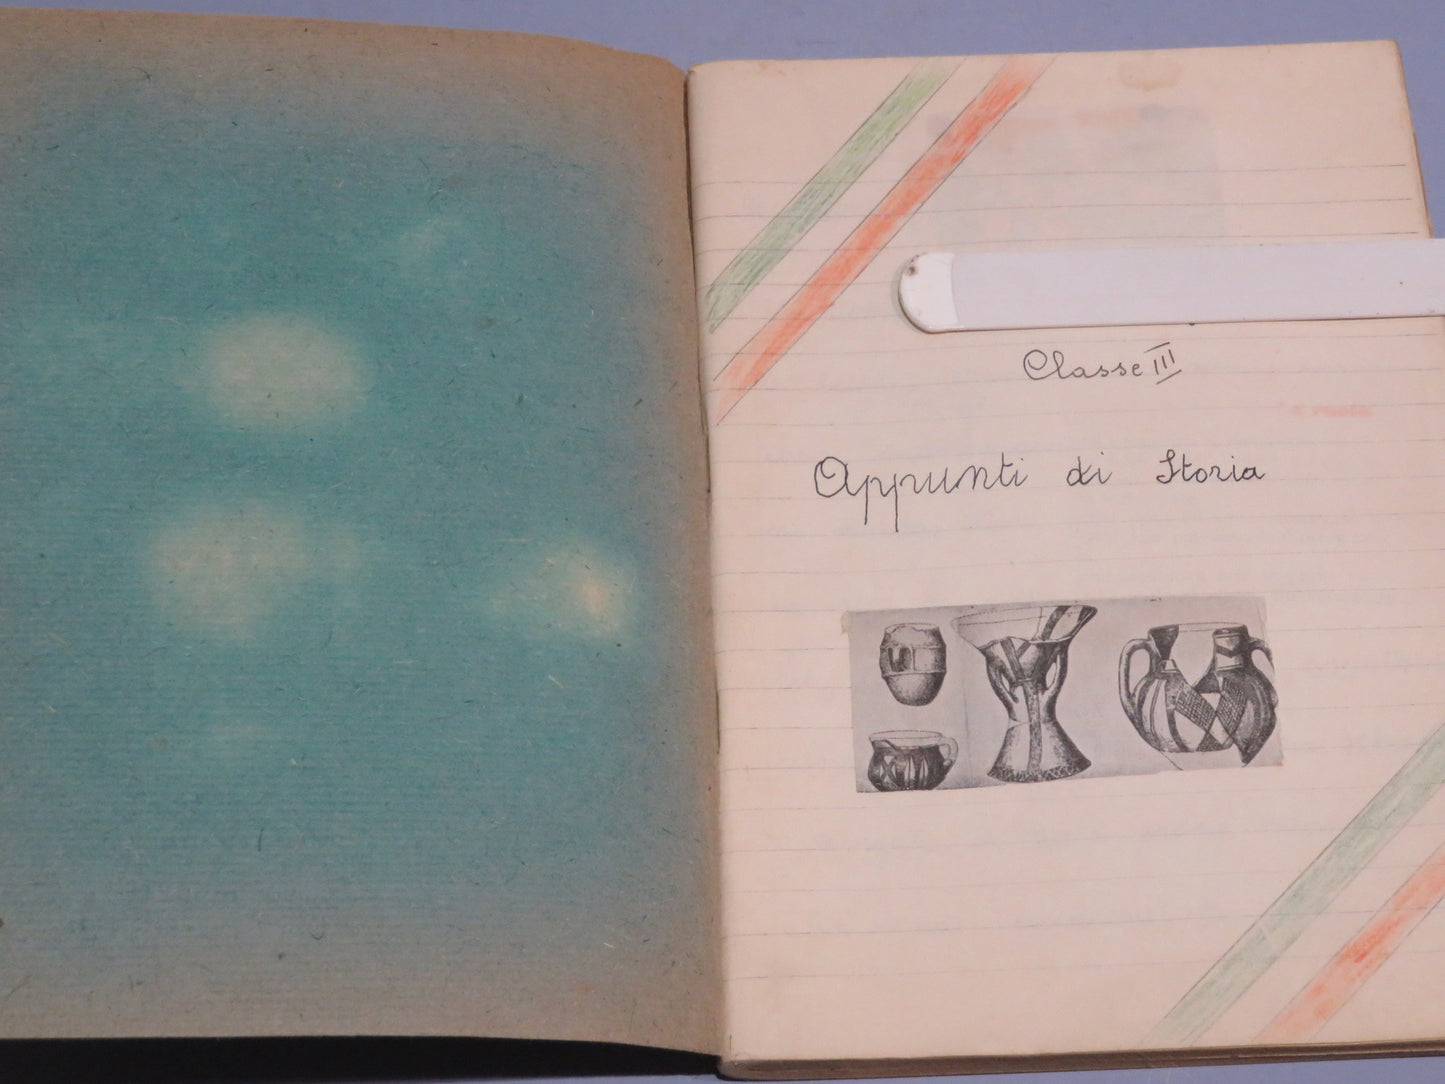 Classe III
Appunti di Storia